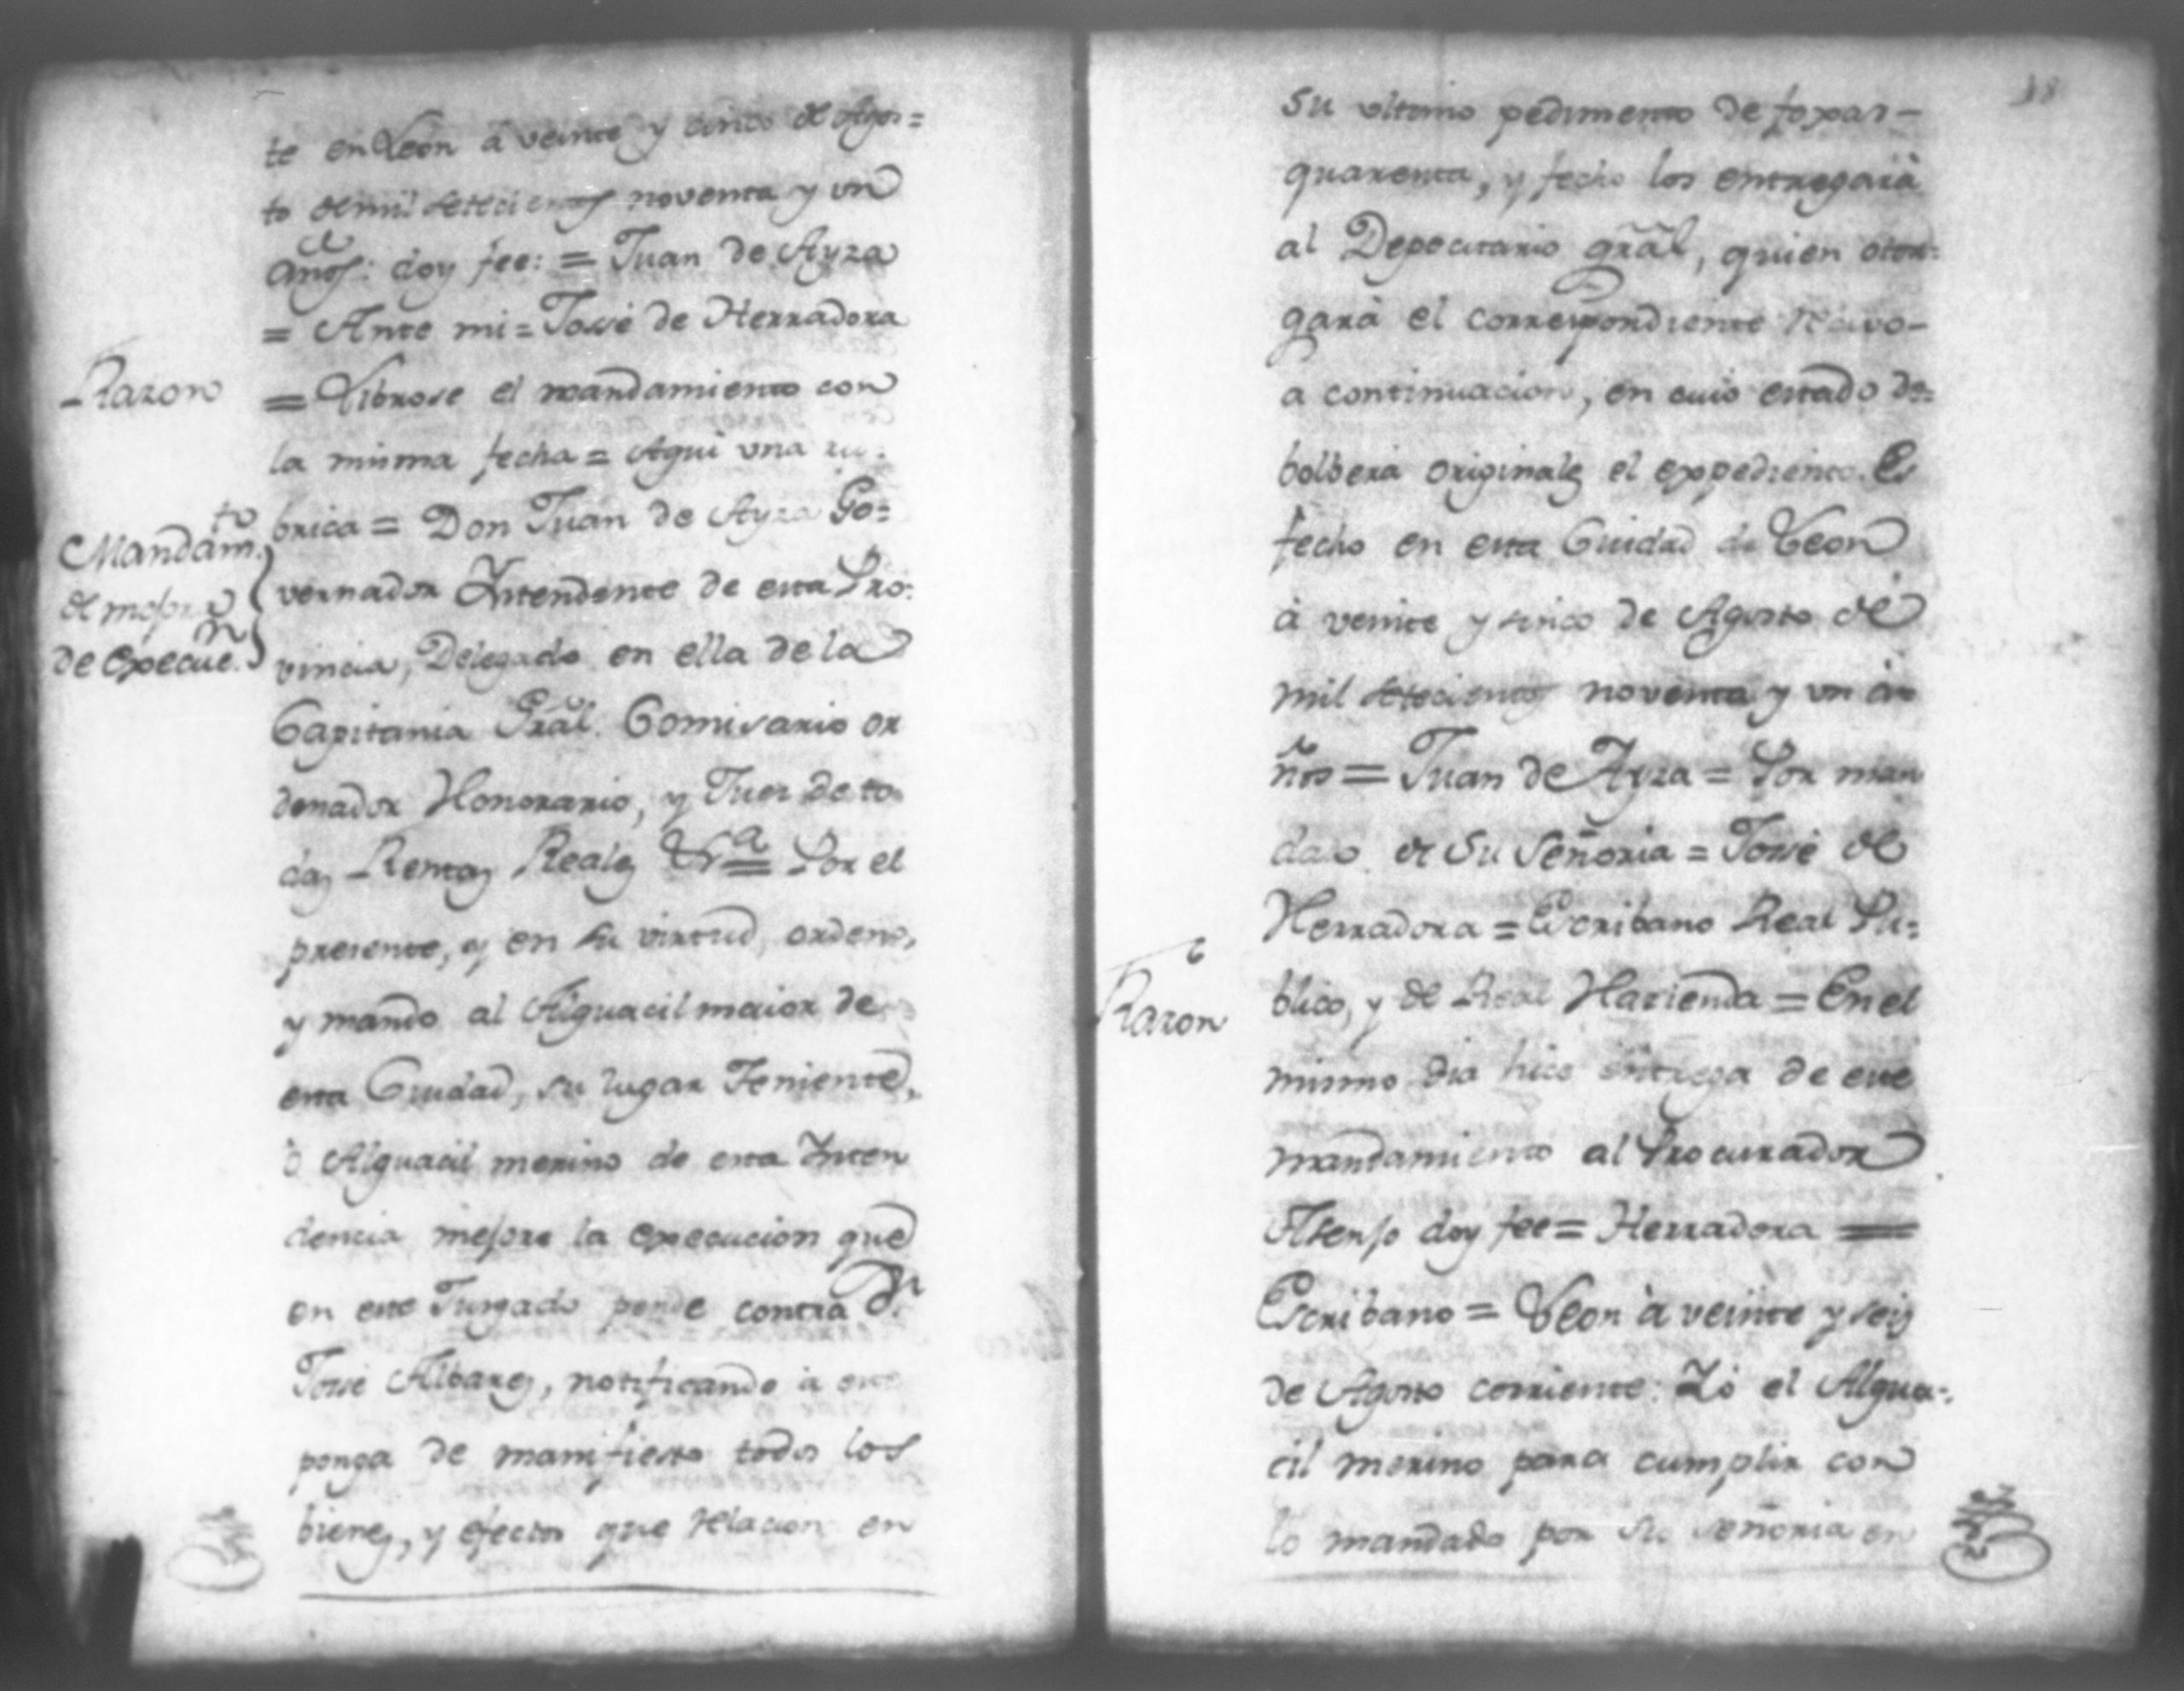 te en Leon á veinte y cinco de Agos=
to de mil setecientos noventa y un
años: doy fee: = Juan de Ayza
= Ante mi = Josse de Herradora
Razon
= Librose el mandamiento con
la misma fecha = Aqui una ru=
brica = Don Juan de Ayza Go=
vernador Intendente de esta Pro=
vincia, Delegado en ella de la
Mandam.to
de mejora
de execuc.n
Capitania Gral. Comisario or
denador Honorario, y Juez de to
das Rentas Reales &.a = Por el
presente, y en su virtud, ordeno,
y mando al Alguacil maior de
esta Ciudad, su lugar Teniente,
ò Alguacil merino de esta Inten
dencia mejore la execucion que
en este Jusgado pende contra D.n
Josse Albares, notificando à este
ponga de manifiesto todos los
bienes, y efectos que relacion en
18
su ultimo pedimento de foxas-
quarenta, y fecho los entregará
al Depocitario gral, quien otor=
gará el correspondiente recivo-
a continuacion, en cuio estado de=
bolberá originales el expediente. Es
fecho en esta Ciudad de Leon
à veinte y sinco de Agosto de
mil setecientos noventa y un a
ños = Juan de Ayza = Por man
dado de Su Señoria = Josse de
Herradora = Escribano Real Pu=
blico, y de Real Hazienda = En el
Razon
mismo dia hice entrega de este
mandamiento al Procurador
Asenjo doy fee = Herradora =
Escribano = Leon à veinte y seis
de Agosto corriente: Yó el Algua=
cil merino para cumplir con
lo mandado por Su Señoria en